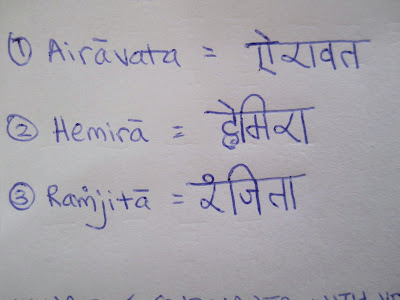 ① Airāvata = ऐरावत
② Hemirā = हेमिरा
③ Raṁjitā = रंजिता